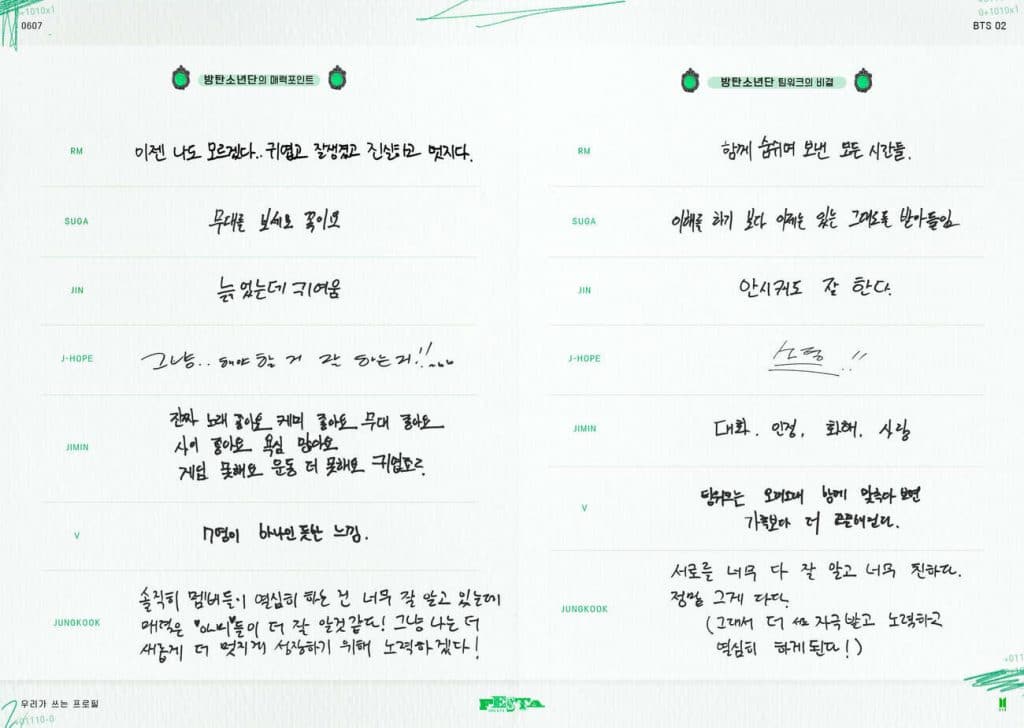 0+1010x1
0607
BTS 02
방탄소년단의 매력포인트
RM
이젠 나도 모르겠다.. 귀엽고 잘생겼고 진실하고 멋지다.
SUGA
무대를 보세요 꼭이요
JIN
늙었는데 귀여움
J-HOPE
그냥.. 해야 할 거 잘 하는거!!
JIMIN
진짜 노래 좋아요 케미 좋아요 무대 좋아요
사이 좋아요 욕심 많아요
게임 못해요 운동 더 못해요 귀엽도르.
V
7명이 하나인 듯한 느낌.
JUNGKOOK
솔직히 멤버들이 열심히 하는 건 너무 잘 알고 있는데
매력은 "아미"들이 더 잘 알것 같다! 그냥 나는 더
새롭게 더 멋지게 성장하기 위해 노력하겠다!
방탄소년단 팀워크의 비결
RM
함께 숨쉬며 보낸 모든 시간들.
SUGA
이해를 하기 보다 이제는 있는 그대로를 받아들임
JIN
안시켜도 잘 한다.
J-HOPE
소통!!
JIMIN
대화. 인정, 화해, 사랑
V
팀워크는 오래오래 함께 맞추다 보면
가족보다 더 끈끈해진다.
JUNGKOOK
서로를 너무 다 잘 알고 너무 친하다.
정말 그게 다다.
(그래서 더 자극받고 노력하고
열심히 하게된다!)
우리가 쓰는 프로필
01110-0
FESTA